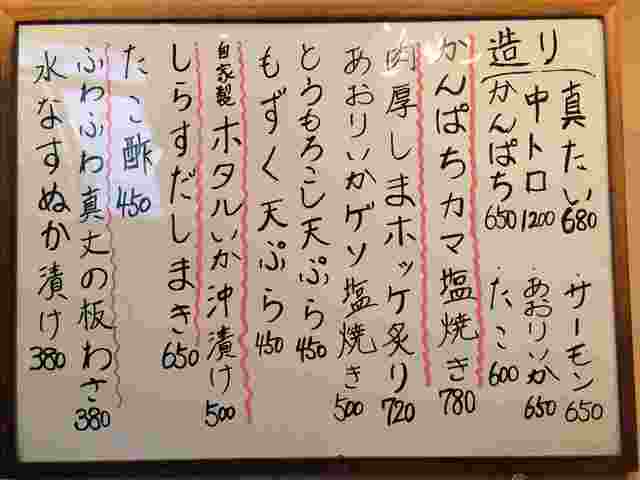 造り
真たい 680
サーモン 650
中トロ 1200
あおりいか 650
かんぱち 650
たこ 600
かんぱちカマ塩焼き 780
肉厚しまホッケ炙り 720
あおりいかゲソ塩焼き 500
とうもろこし天ぷら 450
もずく天ぷら 450
自家製ホタルいか沖漬け 500
しらすだしまき 650
たこ酢 450
ふわふわ真丈の板わさ 380
水なすぬか漬け 380